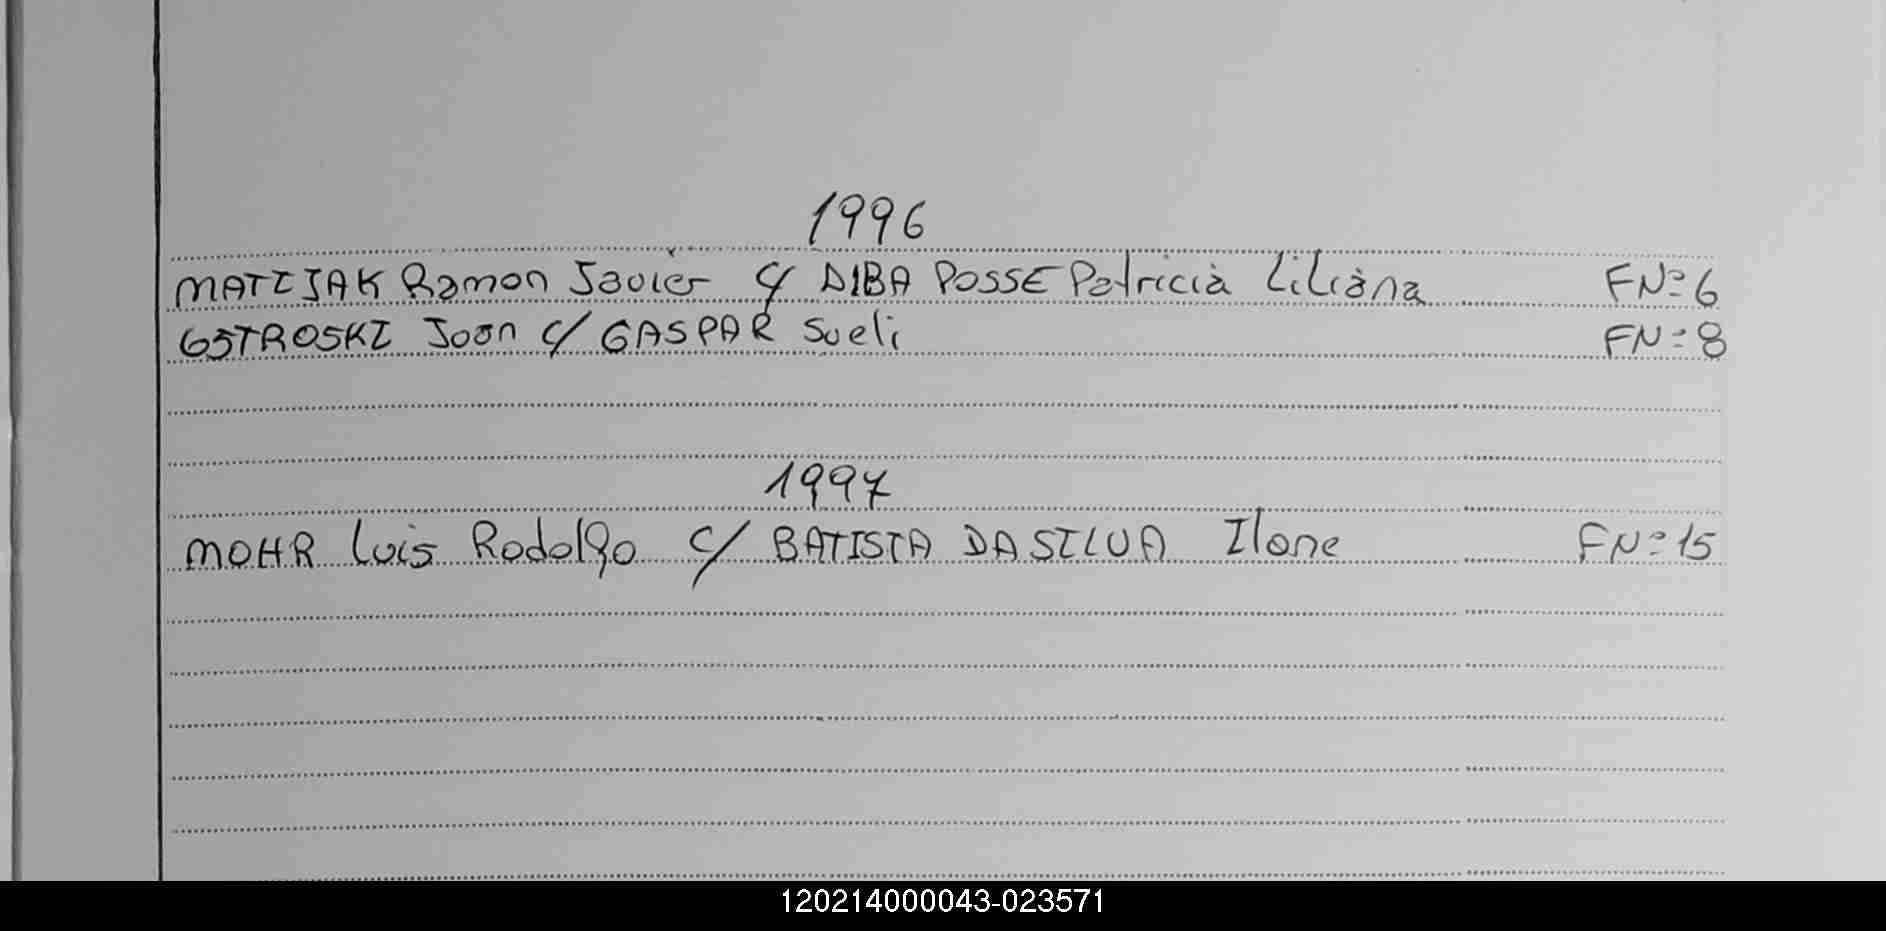 1996
MATIJAK Ramon Javier c/ DIBA POSSE Patricia Liliana FNº 6
GSTROSKI Joan c/ GASPAR Sueli FNº 8
1997
MOHR Luis Rodolfo c/ BATISTA DA SILVA Ilone FNº 15
120214000043-023571